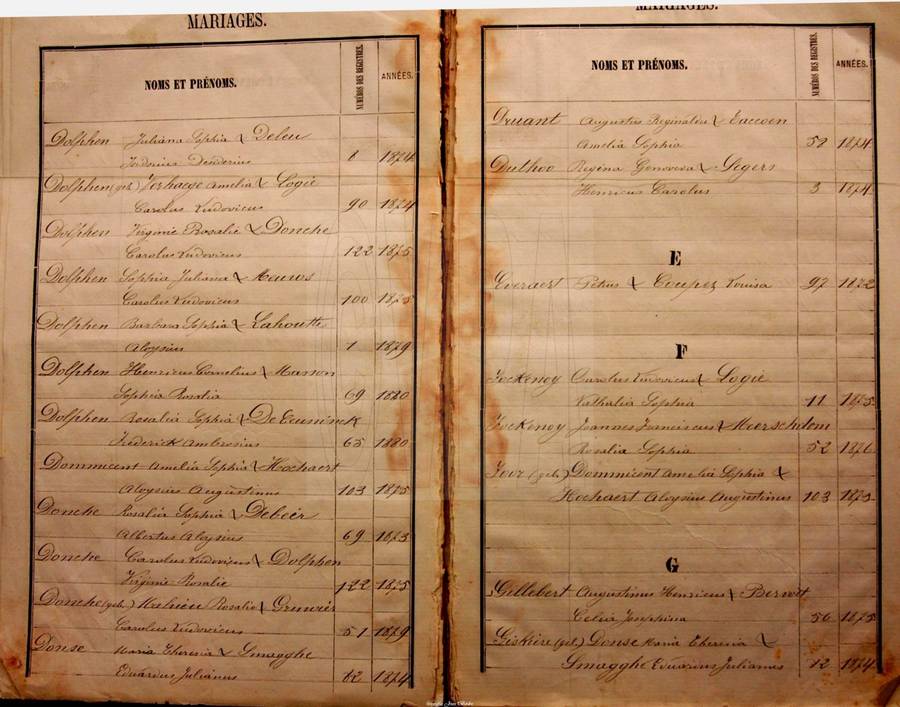 MARIAGES.
NOMS ET PRÉNOMS.
NUMÉROS DES REGISTRES.
ANNÉES.
Dolphen Juliana Sophia & Deleu
Denderius 8 1874
Dolphen (geb.) Verhaege Amelia & Logie
Carolus Ludovicus 90 1874
Dolphen Virginie Rosalie & Donche
Carolus Ludovicus 122 1875
Dolphen Sophia Juliana & Meuws
Carolus Ludovicus 100 1875
Dolphen Barbara Sophia & Lahoutte
Aloysius 1 1879
Dolphen Henricus Cornelius & Masson
Sophia Rosalia 69 1880
Dolphen Rosalia Sophia & De Ceuninck
Frederick Ambrosius 65 1880
Dommicent Amelia Sophia & Hochaert
Aloysius Augustinus 103 1875
Donche Rosalia Sophia & Debeir
Albertus Aloysius 69 1873
Donche Carolus Ludovicus & Dolphen
Virginie Rosalie 122 1875
Donche (geb.) Mahieu Rosalie & Grunvier
Carolus Ludovicus 51 1879
Donse Maria Theresia & Smagghe
Eduardus Julianus 12 1874
MARIAGES.
NOMS ET PRÉNOMS.
NUMÉROS DES REGISTRES.
ANNÉES.
Druant Augustus Reginaldus & Eaccoen
Amelia Sophia 52 1874
Duthoo Regina Genoveva & Segers
Henricus Carolus 3 1874
E
Everaert Petrus & Coupez Louisa 97 1872
F
Fockenoy Carolus Ludovicus & Logie
Nathalia Sophia 11 1875
Fockenoy Joannes Franciscus & Meerschdom
Rosalia Sophia 52 1876
(geb.) Dommicent Amelia Sophia &
Hochaert Aloysius Augustinus 103 1875
G
Gillebert Augustinus Henricus & Bernott
Celia Josephina 56 1875
Giskiere (geb.) Donse Maria Theresia &
Smagghe Eduardus Julianus 12 1874